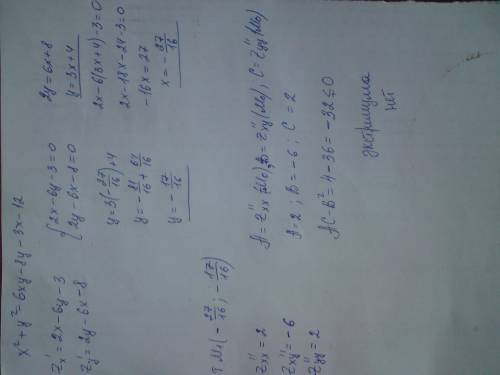 x² + y² - 6xy - 8y - 3x - 12
z'x = 2x - 6y - 3
z'y = 2y - 6x - 8
{ 2x - 6y - 3 = 0
2y - 6x - 8 = 0
2y = 6x + 8
y = 3x + 4
2x - 6(3x + 4) - 3 = 0
2x - 18x - 24 - 3 = 0
-16x = 27
x = -27/16
y = 3(-27/16) + 4
y = -81/16 + 64/16
y = -17/16
т M₁(-27/16; -17/16)
z''xx = 2
z''xy = -6
z''yy = 2
A = z''xx(M₀), B = z''xy(M₀), C = z''yy(M₀)
A = 2; B = -6; C = 2
AC - B² = 4 - 36 = -32 ≤ 0
экстримума
нет